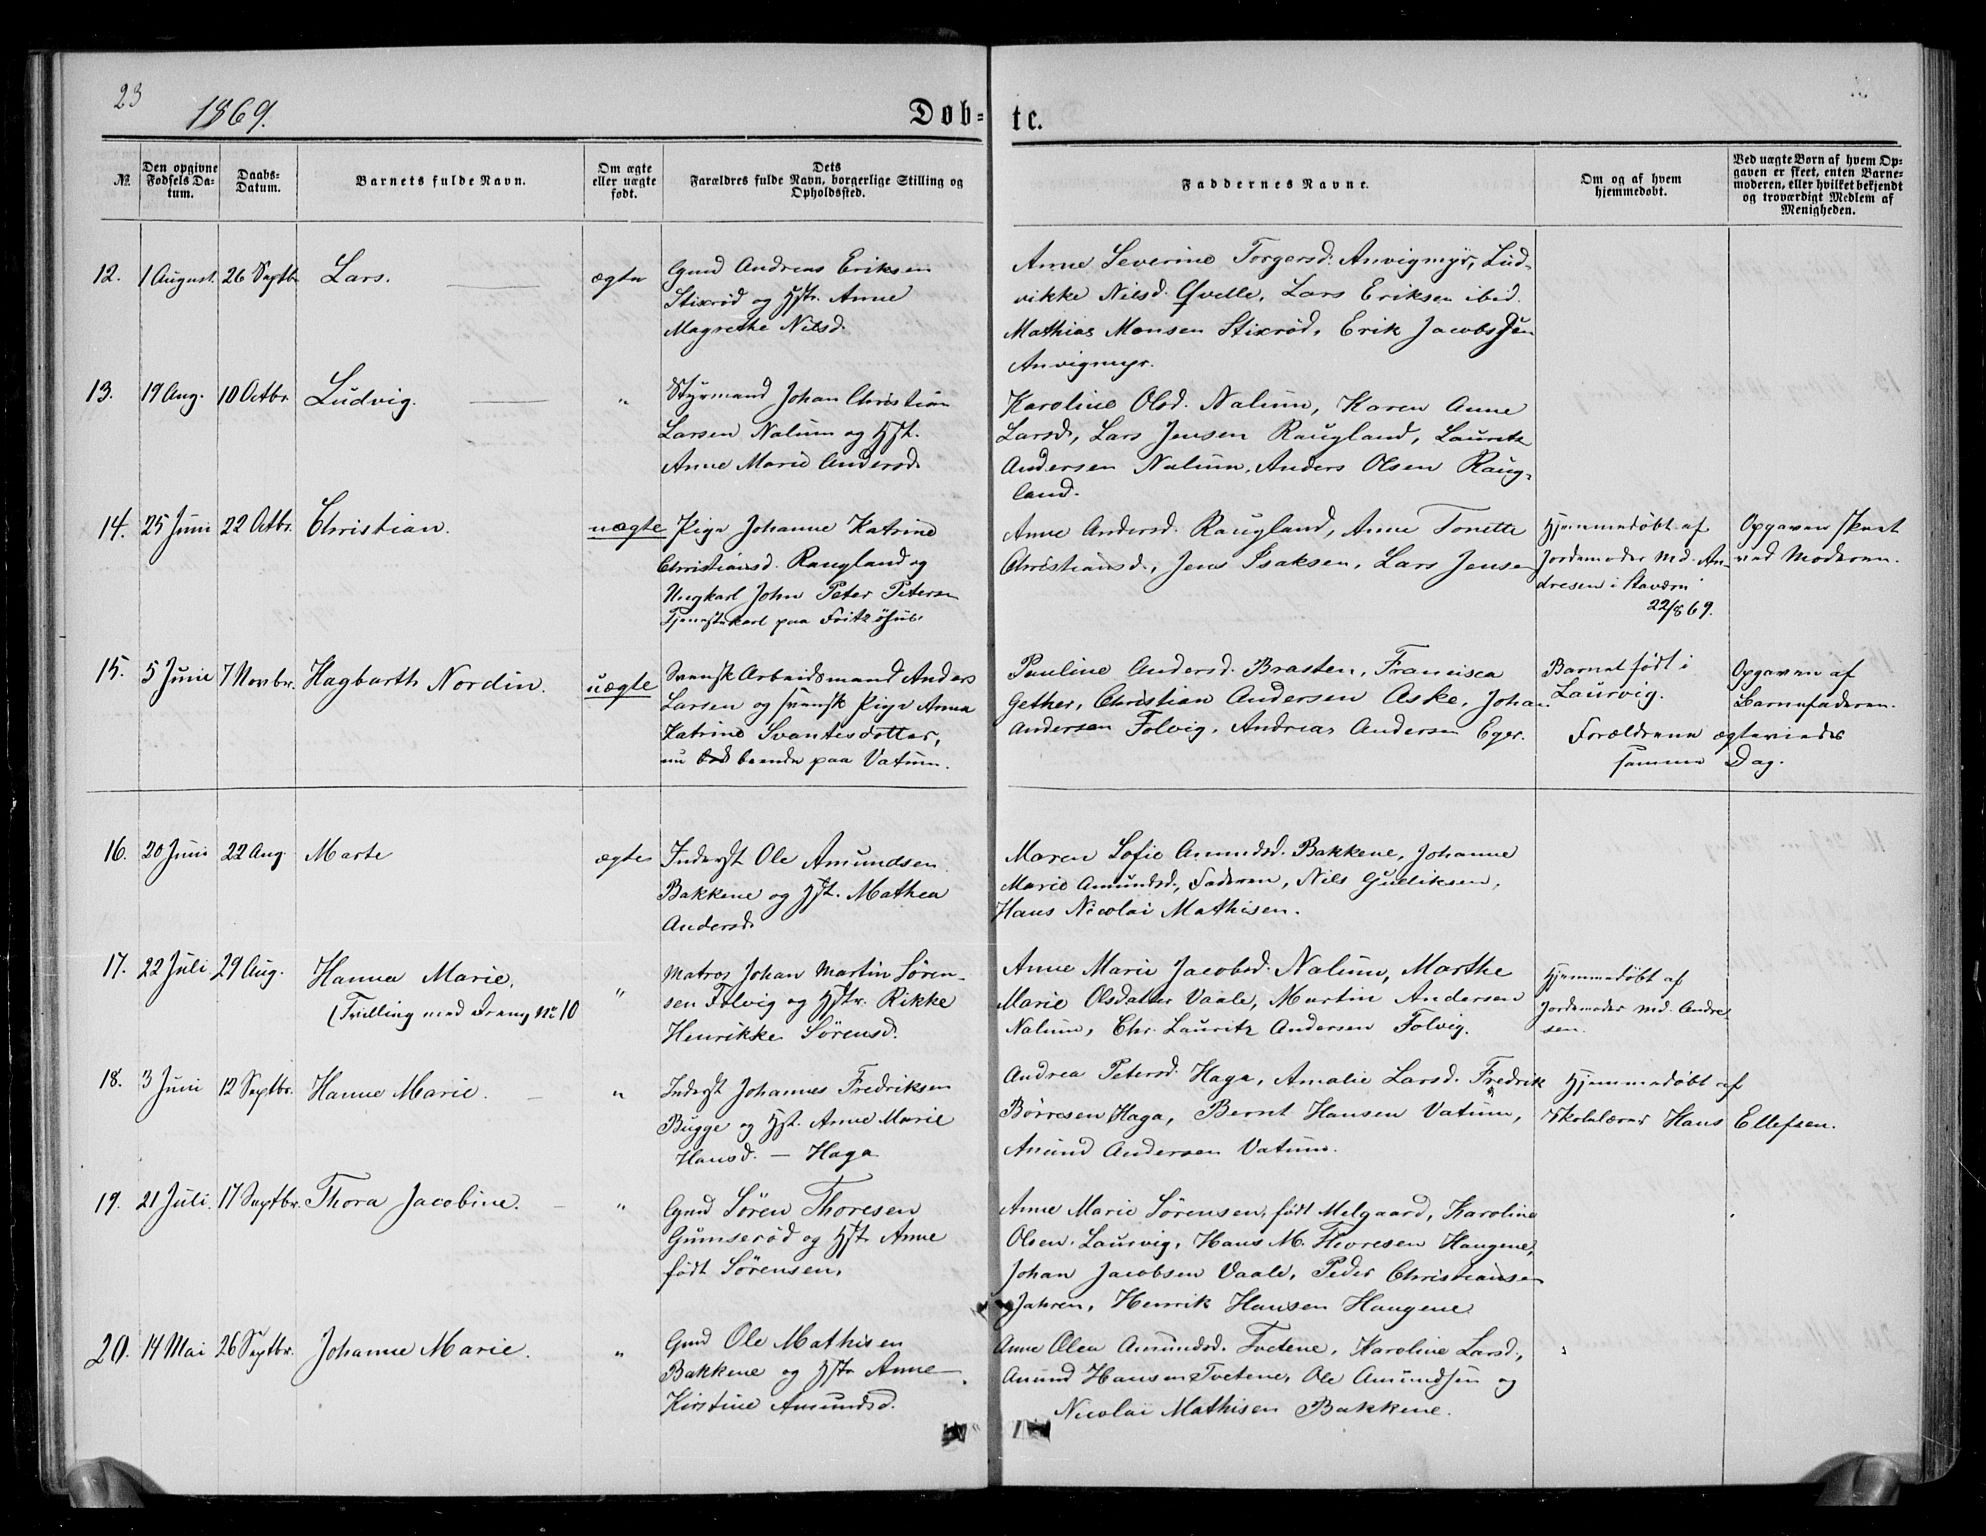 23
1869.
Døb-
te.
No.
Den opgivne
Fødsels Da-
tum.
Daabs-
Datum.
Barnets fulde Navn.
Om ægte
eller uægte
født.
Dets
Forældres fulde Navn, borgerlige Stilling og
Opholdssted.
Faddernes Navne.
Om og af hvem
hjemmedøbt.
Ved uægte Børn af hvem Op-
gaven er skeet, enten Barne-
moderen, eller hvilket bekjendt
og troværdigt Medlem af
Menigheden.
12. 1 August. 26 Septbr. Lars. ægte
Gmd Andreas Eriksen
Stixrød og Hstr. Anne
Magrethe Nilsd.
Anne Severine Torgersd. Anvigmyr, Lud-
vikke Nilsd. Qvelle, Lars Eriksen ibid.
Mathias Monsen Stixrød, Erik Jacobssen
Anvigmyr.
13. 19 Aug. 10 Octbr. Ludvig. "
Styrmand Johan Christian
Larsen Nalum og Hst.
Anne Marie Andersd.
Karoline Olsd. Nalum, Karen Anne
Larsd., Lars Jensen Raugland, Lauritz
Andersen Nalum, Anders Olsen Raug-
land.
14. 25 Juni 22 Octbr. Christian. uægte
Pige Johanne Katrine
Christiansd. Raugland og
Ungkarl John Peter Petersen
Tjenestekarl paa Fritzøhus.
Anne Andersd. Raugland, Anne Tonette
Christiansd., Jens Isaksen, Lars Jensen
Hjemmedøbt af
Jordemoder Md. An-
dresen i Stavern
22/8 69.
Opgaven skeet
ved Moderen.
15. 5 Juni 7 Novbr. Hagbarth Nordin. uægte
Svensk Arbeidsmand Anders
Larsen og svensk Pige Anna
Katrine Svantesdotter,
nu boende paa Vatum.
Pauline Andersd. Brasten, Francisca
Gether, Christian Andersen Aske, Johan
Andersen Folvig, Andreas Andersen Eger.
Barnet født i
Laurvig.
Opgaven af
Barnefaderen.
Forældrene ægteviedes
samme Dag.
16. 20 Juni 22 Aug. Marte ægte
Inderst Ole Amundsen
Bakkene og Hst. Mathea
Andersd.
Maren Sofie Amundsd. Bakkene, Johanne
Marie Amundsd., Faderen, Nils Gulliksen,
Hans Nicolai Mathisen.
17. 22 Juli 29 Aug. Hanna Marie,
(Tvilling med Dreng No 10 "
Matros Johan Martin Søren-
sen Folvig og Hstr. Rikke
Henrikke Sørensd.
Anne Marie Jacobsd. Nalum, Marthe
Marie Olsdatter Vaale, Martin Andersen
Nalum, Chr. Lauritz Andersen Folvig.
Hjemmedøbt af
Jordemoder Md. Andre-
sen.
18. 3 Juni 12 Septbr. Hanne Marie. "
Inderst Johannes Fredriksen
Bugge og Hst. Anne Marie
Hansd. — Haga
Andrea Petersd. Haga, Amalie Larsd. Fredrik
Børresen Haga, Bernt Hansen Vatum,
Amund Andersen Vatum.
Hjemmedøbt af
Skolelærer Hans Ellefsen.
19. 21 Juli. 17 Septbr. Thora Jacobine. "
Gmd Søren Thoresen
Gumserød og Hst. Anne
født Sørensen.
Anne Marie Sørensen, født Melgaard, Karoline
Olsen, Laurvig, Hans M. Thoresen Haugene,
Johan Jacobsen Vaale, Peder Christiansen
Jahren, Henrik Hansen Haugene
20. 14 Mai 26 Septbr. Johanne Marie. "
Gmd Ole Mathisen
Bakkene og Hstr Anne
Kirstine Amundsd.
Anne Olea Amundsd. Tvetene, Karoline Larsd.,
Amund Hansen Tvetene, Ole Amundsen og
Nicolai Mathisen Bakkene.